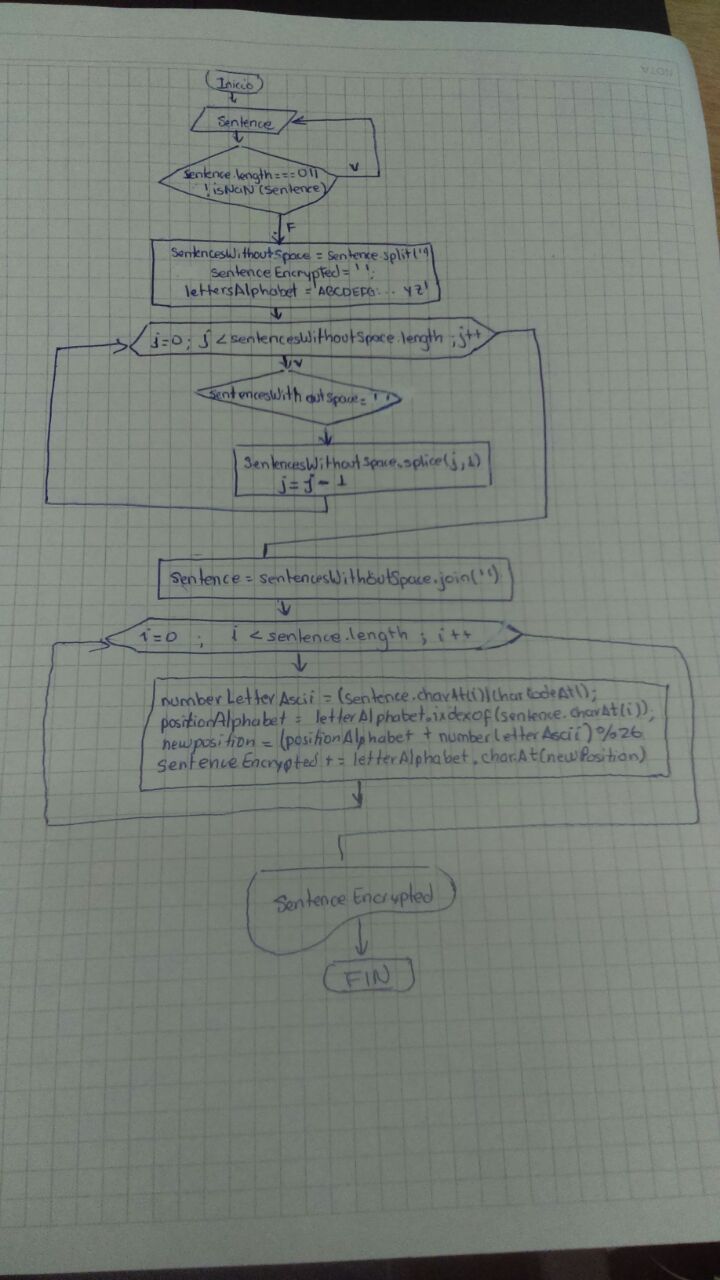 NOTA
Inicio
Sentence
Sentence.length===0||
!isNaN(Sentence)
V
F
SentencesWithoutSpace = Sentence.split('')
sentenceEncrypted = '';
lettersAlphabet = 'ABCDEFG... YZ'
j=0; j < sentencesWithoutSpace.length ; j++
V
SentencesWithoutSpace = ' '
SentencesWithoutSpace.splice(j,1)
j = j - 1
Sentence = sentencesWithoutSpace.join('')
i=0 ; i < sentence.length ; i++
numberLetterAscii = (sentence.charAt(i)).charCodeAt();
positionAlphabet = letterAlphabet.indexOf(sentence.charAt(i));
newposition = (positionAlphabet + numberLetterAscii) % 26
sentenceEncrypted += letterAlphabet.charAt(newPosition)
Sentence Encrypted
FIN